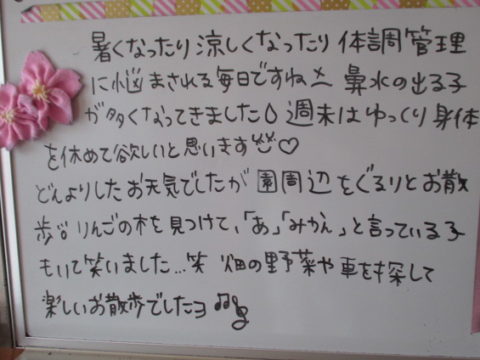 暑くなったり涼しくなったり体調管理
に悩まされる毎日ですね 鼻水の出る子
が多くなってきました 週末はゆっくり身体
を休めて欲しいと思います♡
どんよりしたお天気でしたが園周辺をぐるりとお散
歩。りんごの木を見つけて、「あ」「みかん」と言っている子
もいて笑いました…笑 畑の野菜や車を探して
楽しいお散歩でしたヨ♫